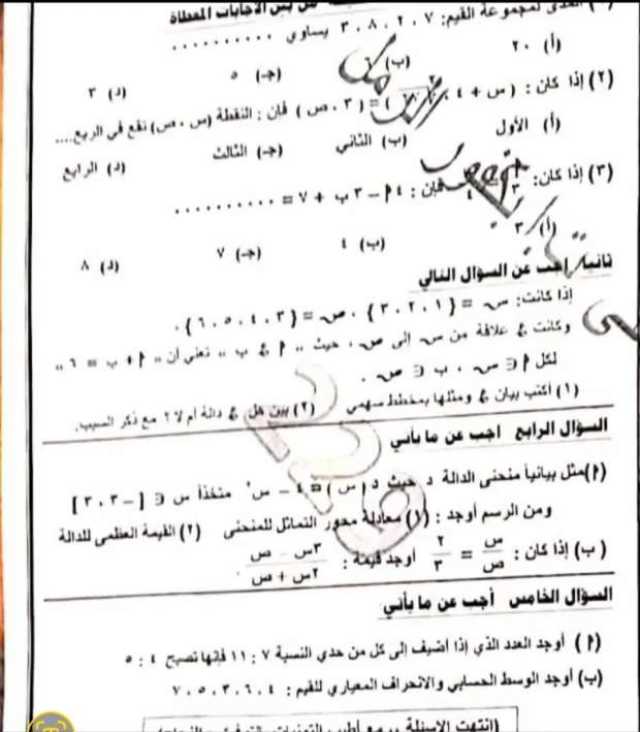 من بين الاجابات المعطاة
المدى لمجموعة القيم: ٧ ، ٢ ، ٨ ، ٣ يساوي ..........
(أ) ٢٠ (ب) ٦ (جـ) ٥ (د) ٣
(٢) إذا كان : ( س + ٤ ، ) = ( ٣ ، ص ) فإن : النقطة (س ، ص) تقع في الربع....
(أ) الأول (ب) الثاني (جـ) الثالث (د) الرابع
(٣) إذا كان: فإن : ٤ أ – ٣ ب + ٧ = ..........
(أ) ٣ (ب) ٤ (جـ) ٧ (د) ٨
ثانيا اجب عن السؤال التالي
إذا كانت: س = { ١ ، ٢ ، ٣ } ، ص = { ٣ ، ٤ ، ٥ ، ٦ } ،
وكانت ع علاقة من س إلى ص ، حيث ,, أ ع ب ,, تعني أن ,, أ + ب = ٦ ,,
لكل أ ∈ س ، ب ∈ ص .
(١) أكتب بيان ع ومثلها بمخطط سهمي (٢) بين هل ع دالة أم لا ؟ مع ذكر السبب.
السؤال الرابع اجب عن ما يأتي
(أ) مثل بيانياً منحنى الدالة د حيث د ( س ) = ٤ – س² متخذاً س ∈ [ –٣ ، ٣ ]
ومن الرسم أوجد : (١) معادلة محور التماثل للمنحنى (٢) القيمة العظمى للدالة
( ب ) إذا كان : س/ص = ٢/٣ أوجد قيمة : ٣س – ص / ٢س + ص
السؤال الخامس أجب عن ما يأتي
(أ) أوجد العدد الذي إذا أضيف إلى كل من حدي النسبة ٧ : ١١ فإنها تصبح ٤ : ٥
(ب) أوجد الوسط الحسابي والانحراف المعياري للقيم : ٤ ، ٦ ، ٣ ، ٥ ، ٧
(انتهت الاسئلة .. مع أطيب